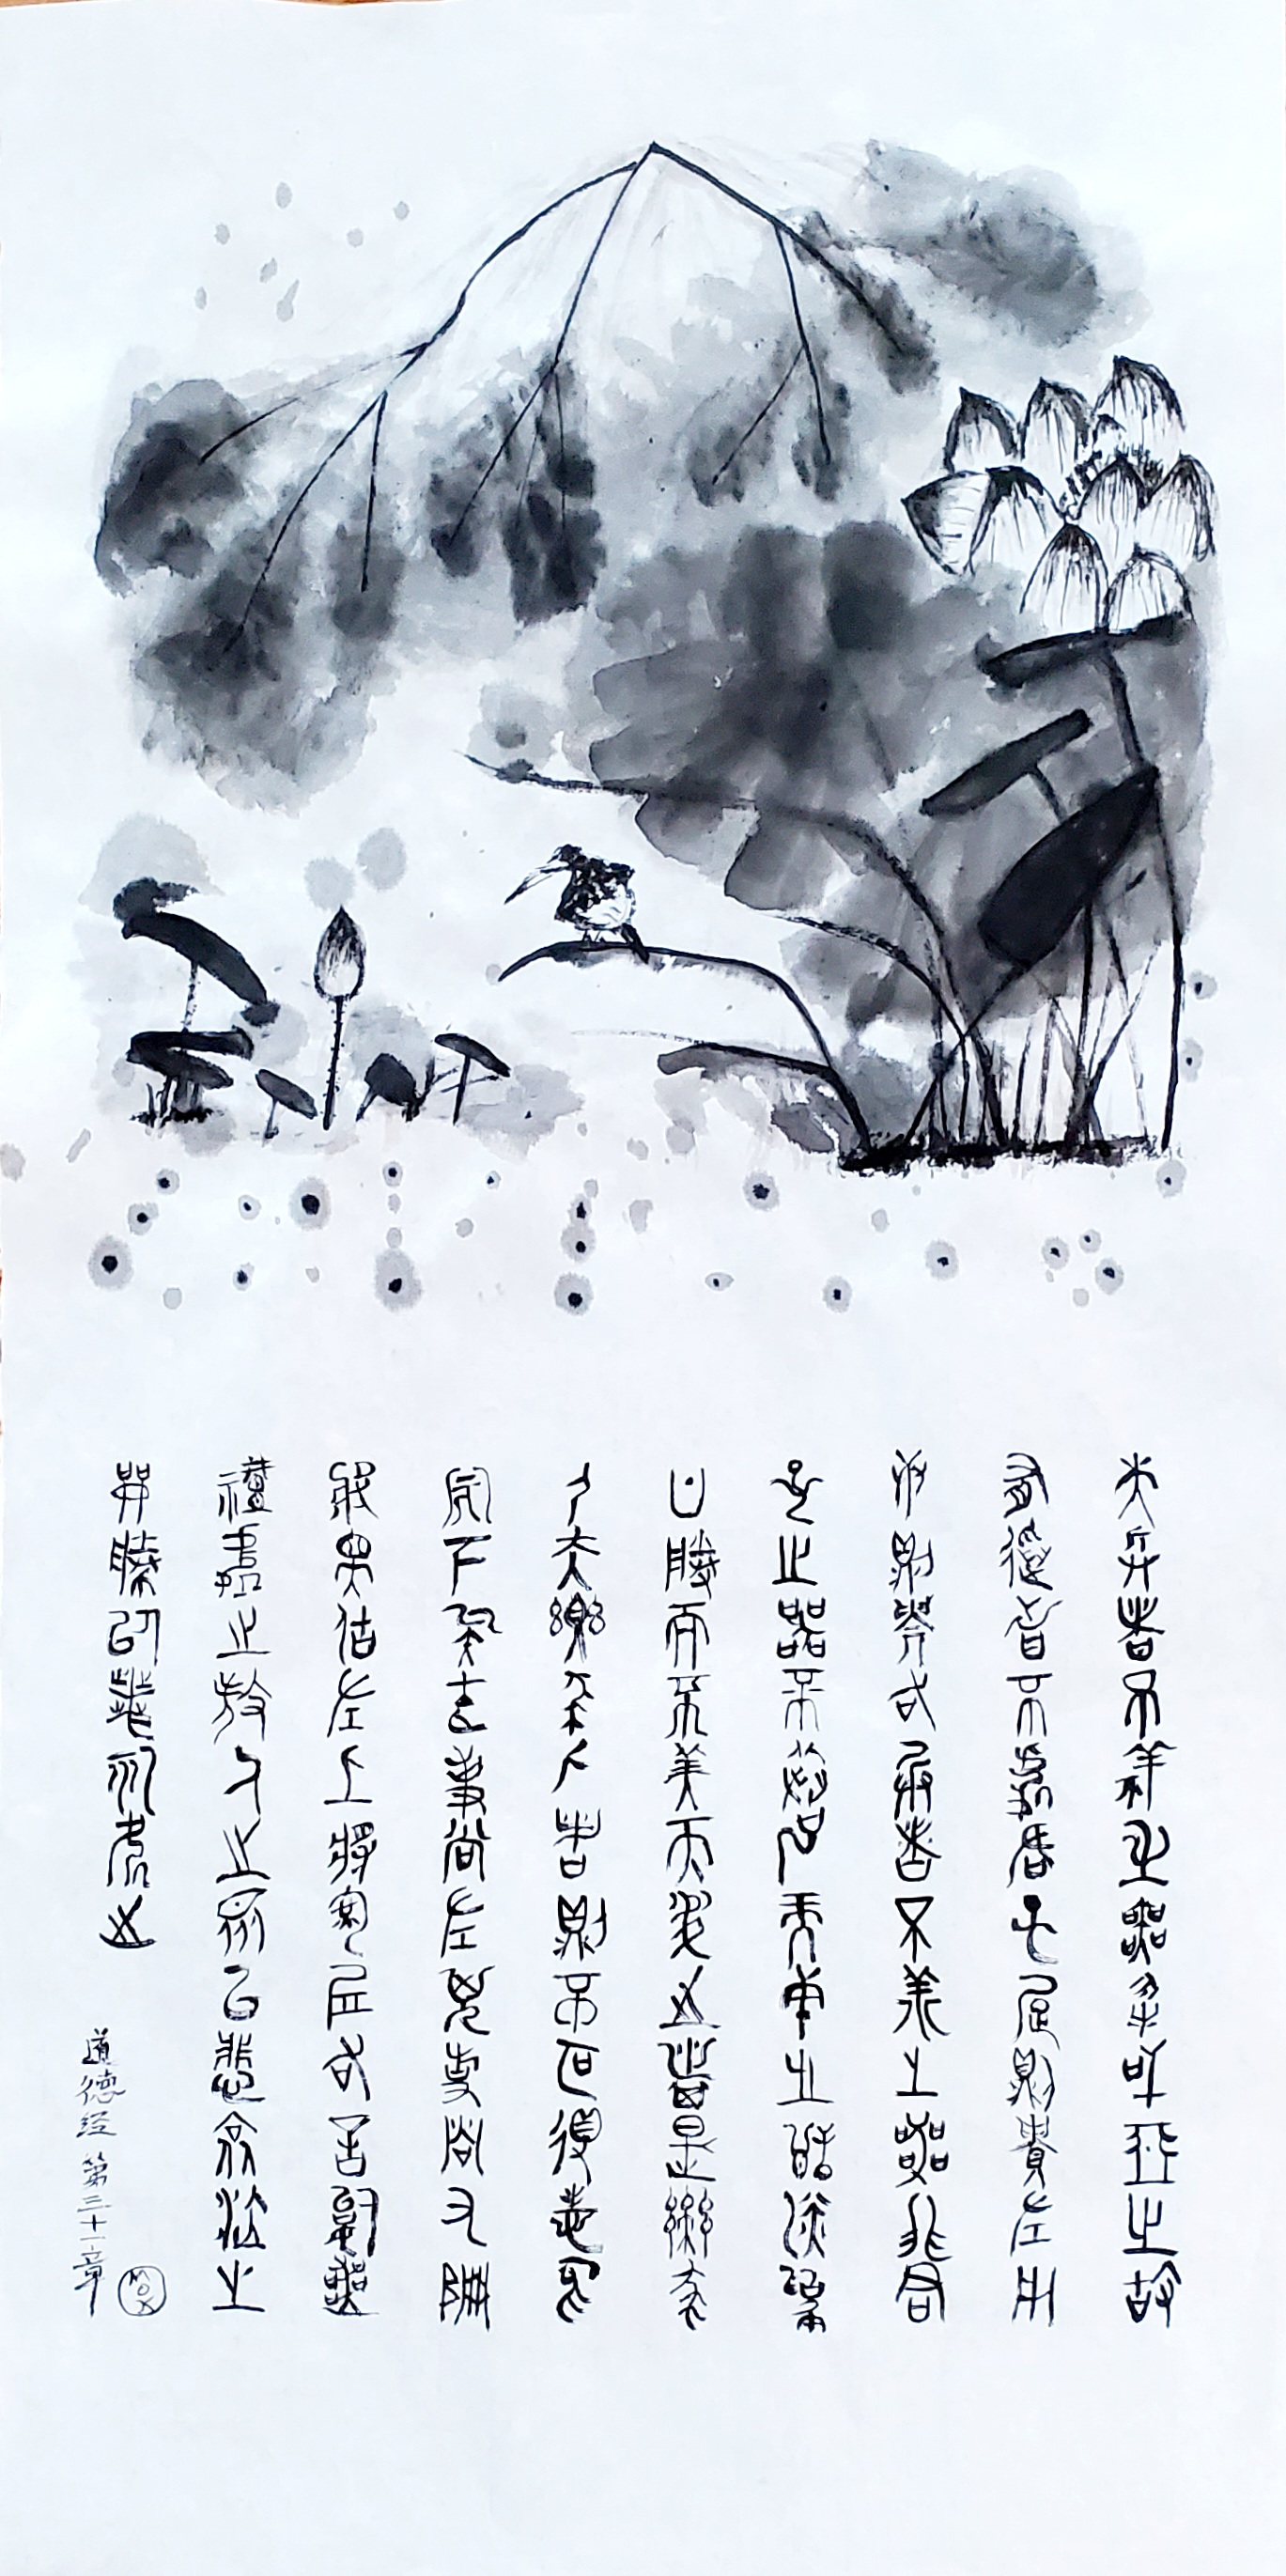 夫兵者不祥之器物或惡之故
有道者不處君子居則貴左用
兵則貴右兵者不祥之器非君
子之器不得已而用之恬淡為
上勝而不美而美之者是樂殺
人夫樂殺人者則不可得志於
天下矣吉事尚左凶事尚右偏
將軍居左上將軍居右言以喪
禮處之殺人之眾以悲哀泣之
戰勝以喪禮處之
道德经 第三十一章
MOX